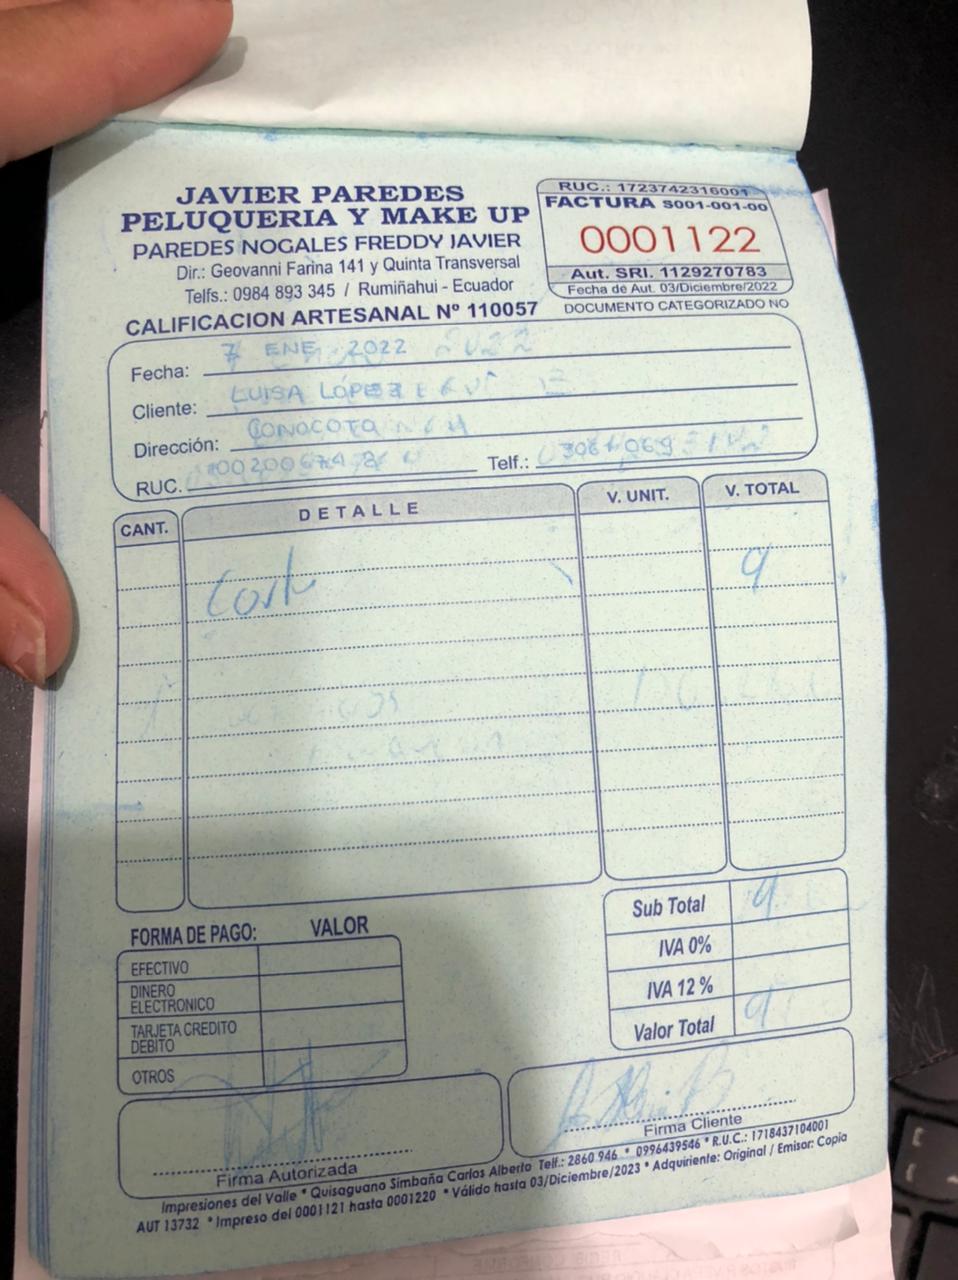 JAVIER PAREDES
PELUQUERIA Y MAKE UP
PAREDES NOGALES FREDDY JAVIER
Dir.: Geovanni Farina 141 y Quinta Transversal
Telfs.: 0984 893 345 / Rumiñahui - Ecuador
CALIFICACION ARTESANAL Nº 110057
RUC.: 1723742316001
FACTURA S001-001-00
0001122
Aut. SRI. 1129270783
Fecha de Aut. 03/Diciembre/2022
DOCUMENTO CATEGORIZADO NO
Fecha: 7 ENE 2022
Cliente: LUISA LÓPEZ
Dirección: CONOCOTO
RUC. Telf.:
CANT. DETALLE V. UNIT. V. TOTAL
Corte 9
FORMA DE PAGO: VALOR
EFECTIVO
DINERO
ELECTRONICO
TARJETA CREDITO
DEBITO
OTROS
Sub Total 9
IVA 0%
IVA 12 %
Valor Total 9
Firma Autorizada
Firma Cliente
Impresiones del Valle * Quisaguano Simbaña Carlos Alberto Telf.: 2860 946 * 0996439546 * R.U.C.: 1718437104001
AUT 13732 * Impreso del 0001121 hasta 0001220 * Válido hasta 03/Diciembre/2023 * Adquiriente: Original / Emisor: Copia